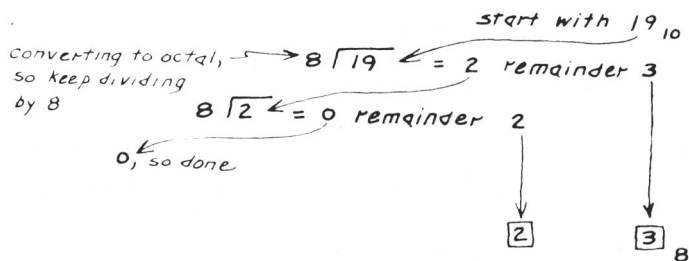 start with 19₁₀
converting to octal,
so keep dividing
by 8
8 19 = 2 remainder 3
8 2 = 0 remainder 2
0, so done
2 3 8